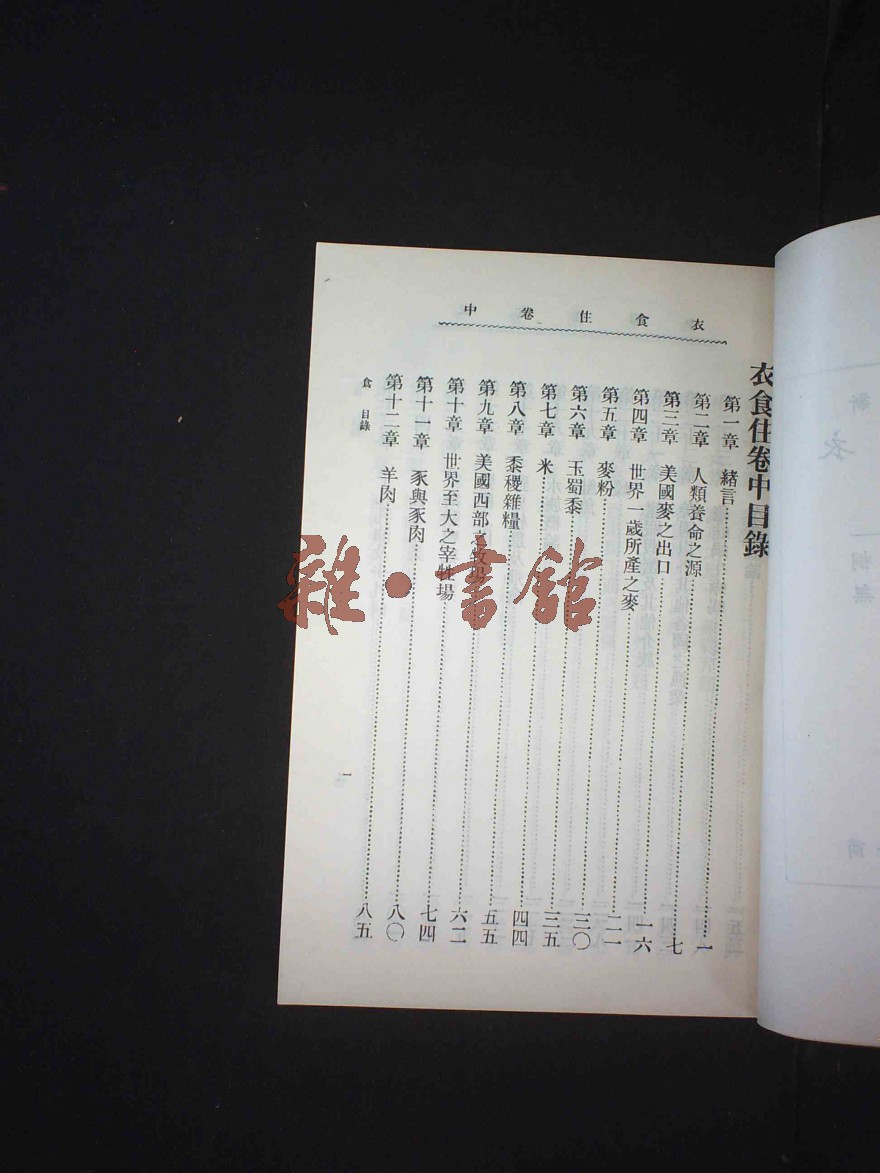 衣食住卷中
衣食住卷中目錄
第一章 緒言……一
第二章 人類養命之源……七
第三章 美國麥之出口……一六
第四章 世界一歲所產之麥……二一
第五章 麥粉……三〇
第六章 玉蜀黍……三五
第七章 米……四四
第八章 黍稷雜糧……五五
第九章 美國西部之牧場……六二
第十章 世界至大之宰牲場……七四
第十一章 豕與豕肉……八〇
第十二章 羊肉……八五
食 目錄
一
雜·書館